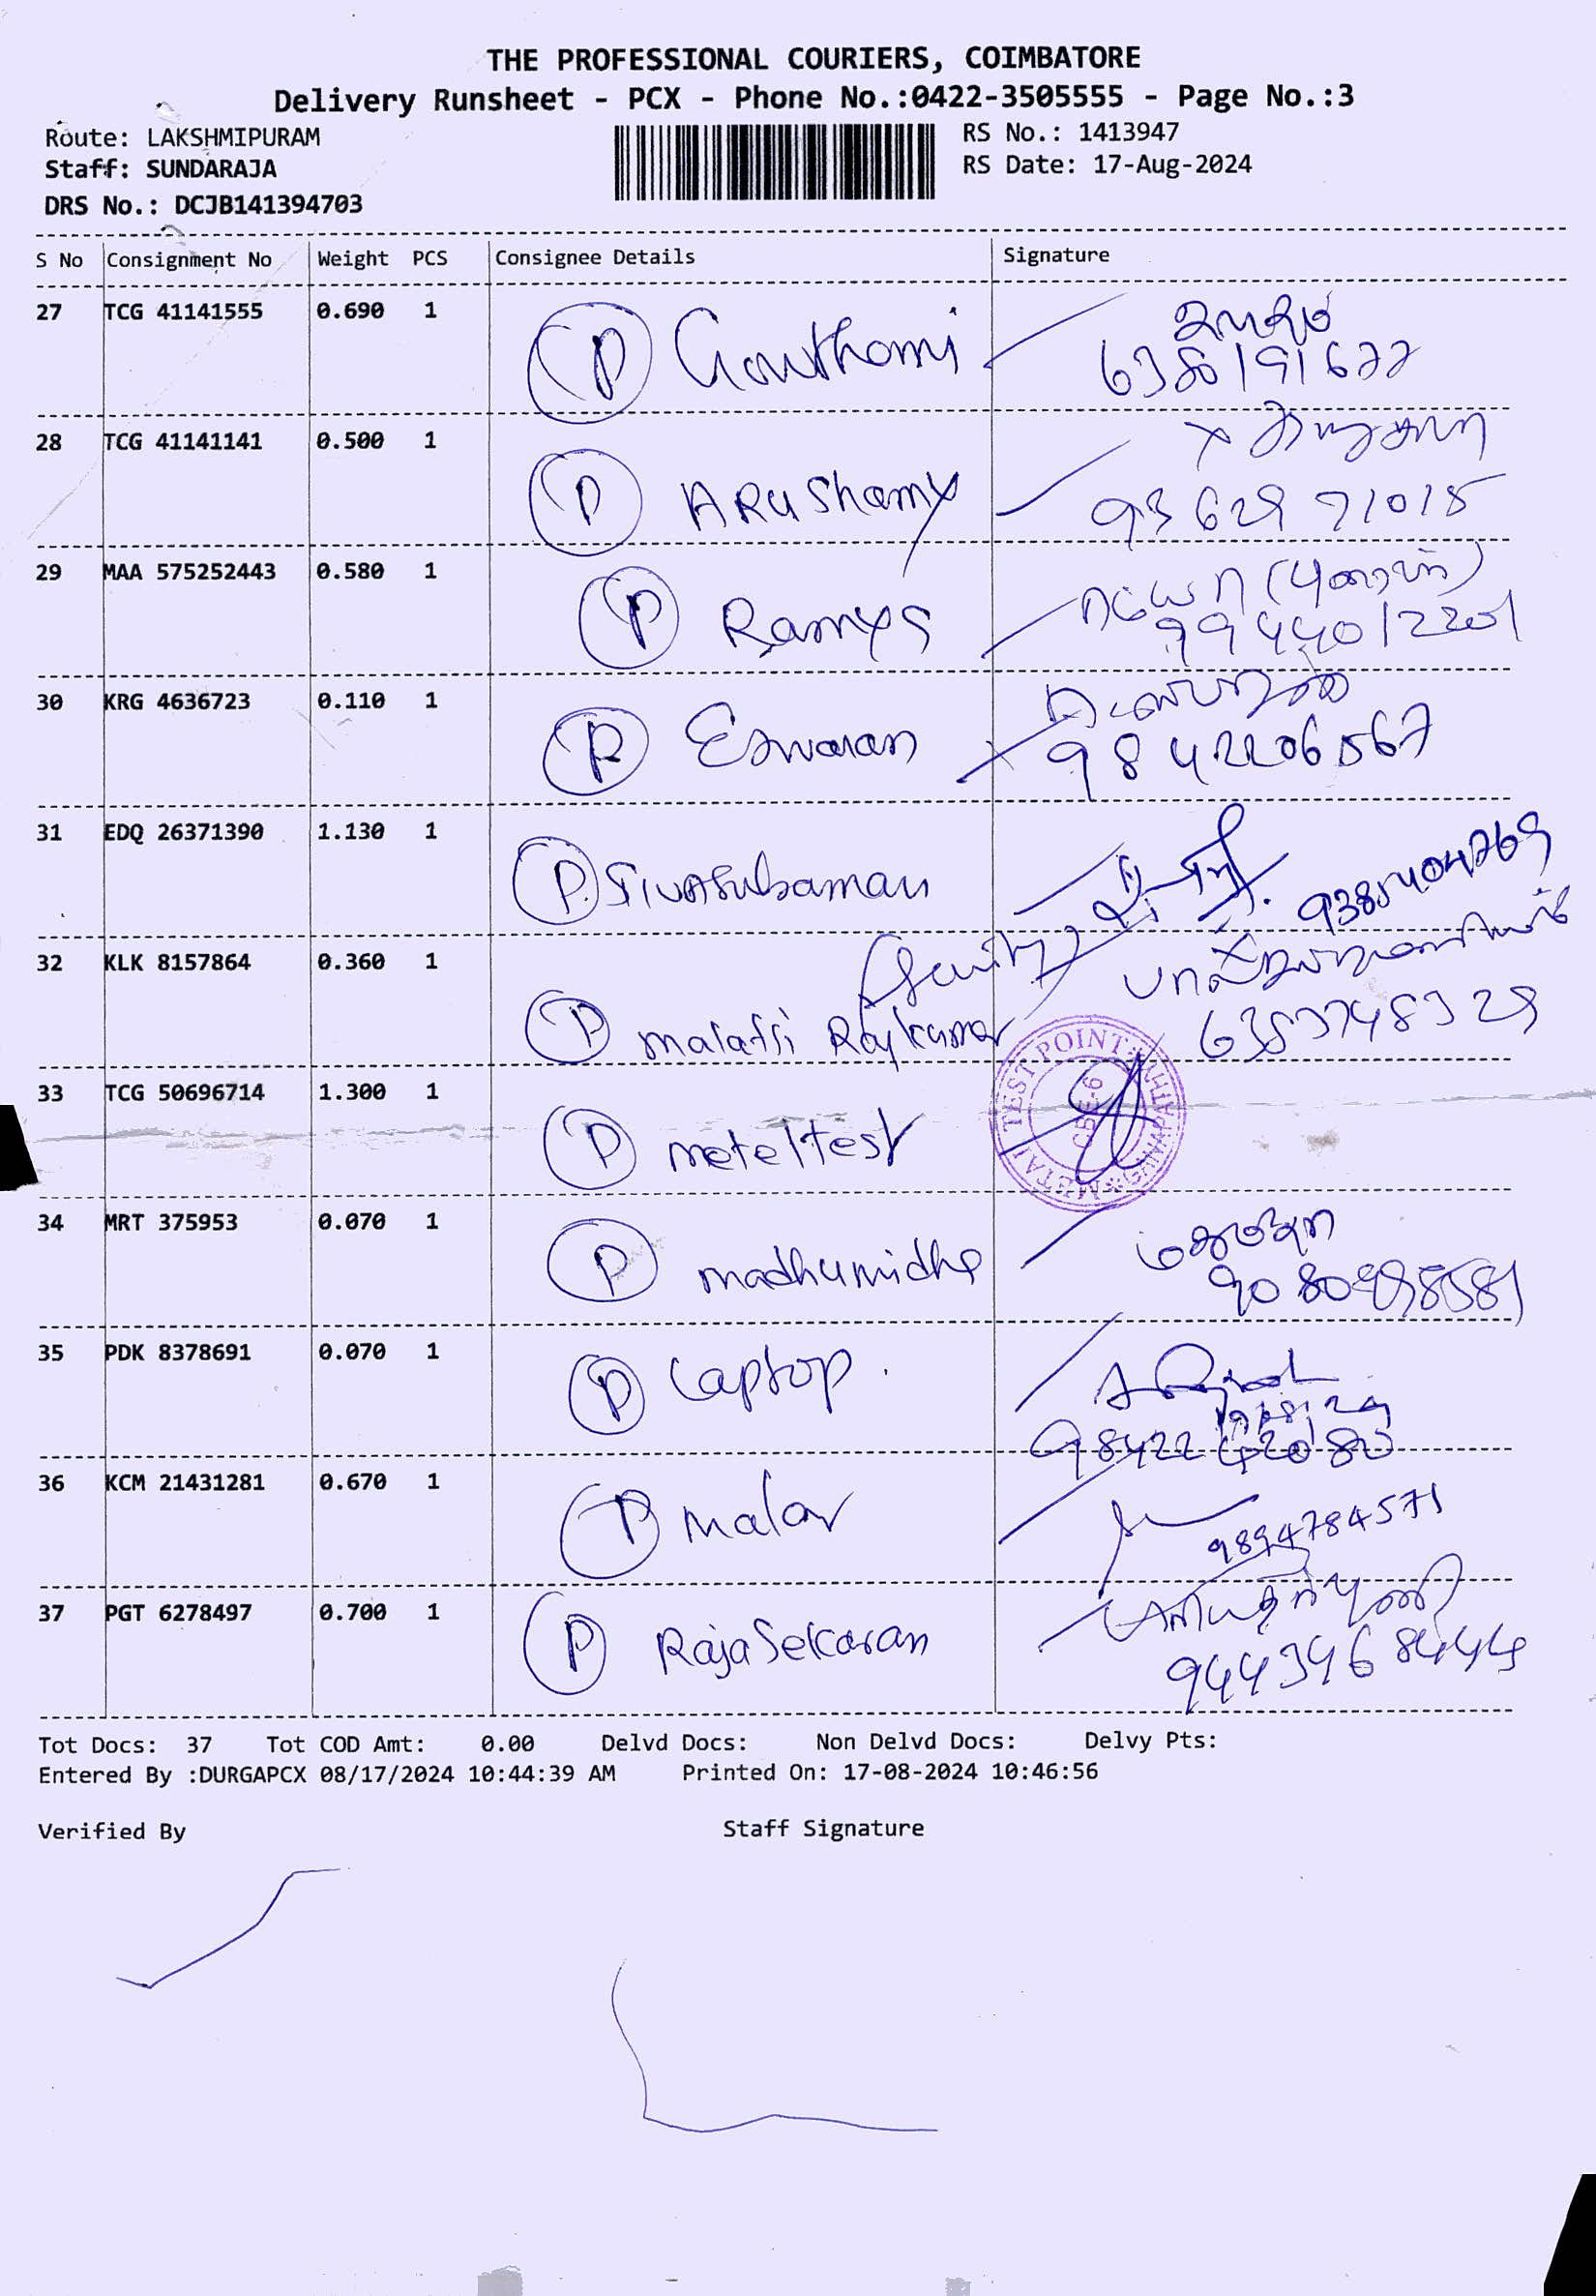 THE PROFESSIONAL COURIERS, COIMBATORE
Delivery Runsheet - PCX - Phone No.:0422-3505555 - Page No.:3
Route: LAKSHMIPURAM
Staff: SUNDARAJA
DRS No.: DCJB141394703
RS No.: 1413947
RS Date: 17-Aug-2024
S No Consignment No Weight PCS Consignee Details Signature
27 TCG 41141555 0.690 1 P Gowthami
28 TCG 41141141 0.500 1 P ARuShamy
93629 71015
29 MAA 575252443 0.580 1 P Ramya
9944012201
30 KRG 4636723 0.110 1 P Eswaran
9842206567
31 EDQ 26371390 1.130 1 P. Sivasubaman
9385404769
32 KLK 8157864 0.360 1 P malathi Rajkumar
6383748329
33 TCG 50696714 1.300 1 P meteltest
METAL TEST POINT GANAPATHY CBE-6
34 MRT 375953 0.070 1 P madhumidha
35 PDK 8378691 0.070 1 P Laptop.
98422 42080
36 KCM 21431281 0.670 1 P malar
9894784571
37 PGT 6278497 0.700 1 P RajaSekaran
Tot Docs: 37 Tot COD Amt: 0.00 Delvd Docs: Non Delvd Docs: Delvy Pts:
Entered By :DURGAPCX 08/17/2024 10:44:39 AM Printed On: 17-08-2024 10:46:56
Verified By Staff Signature